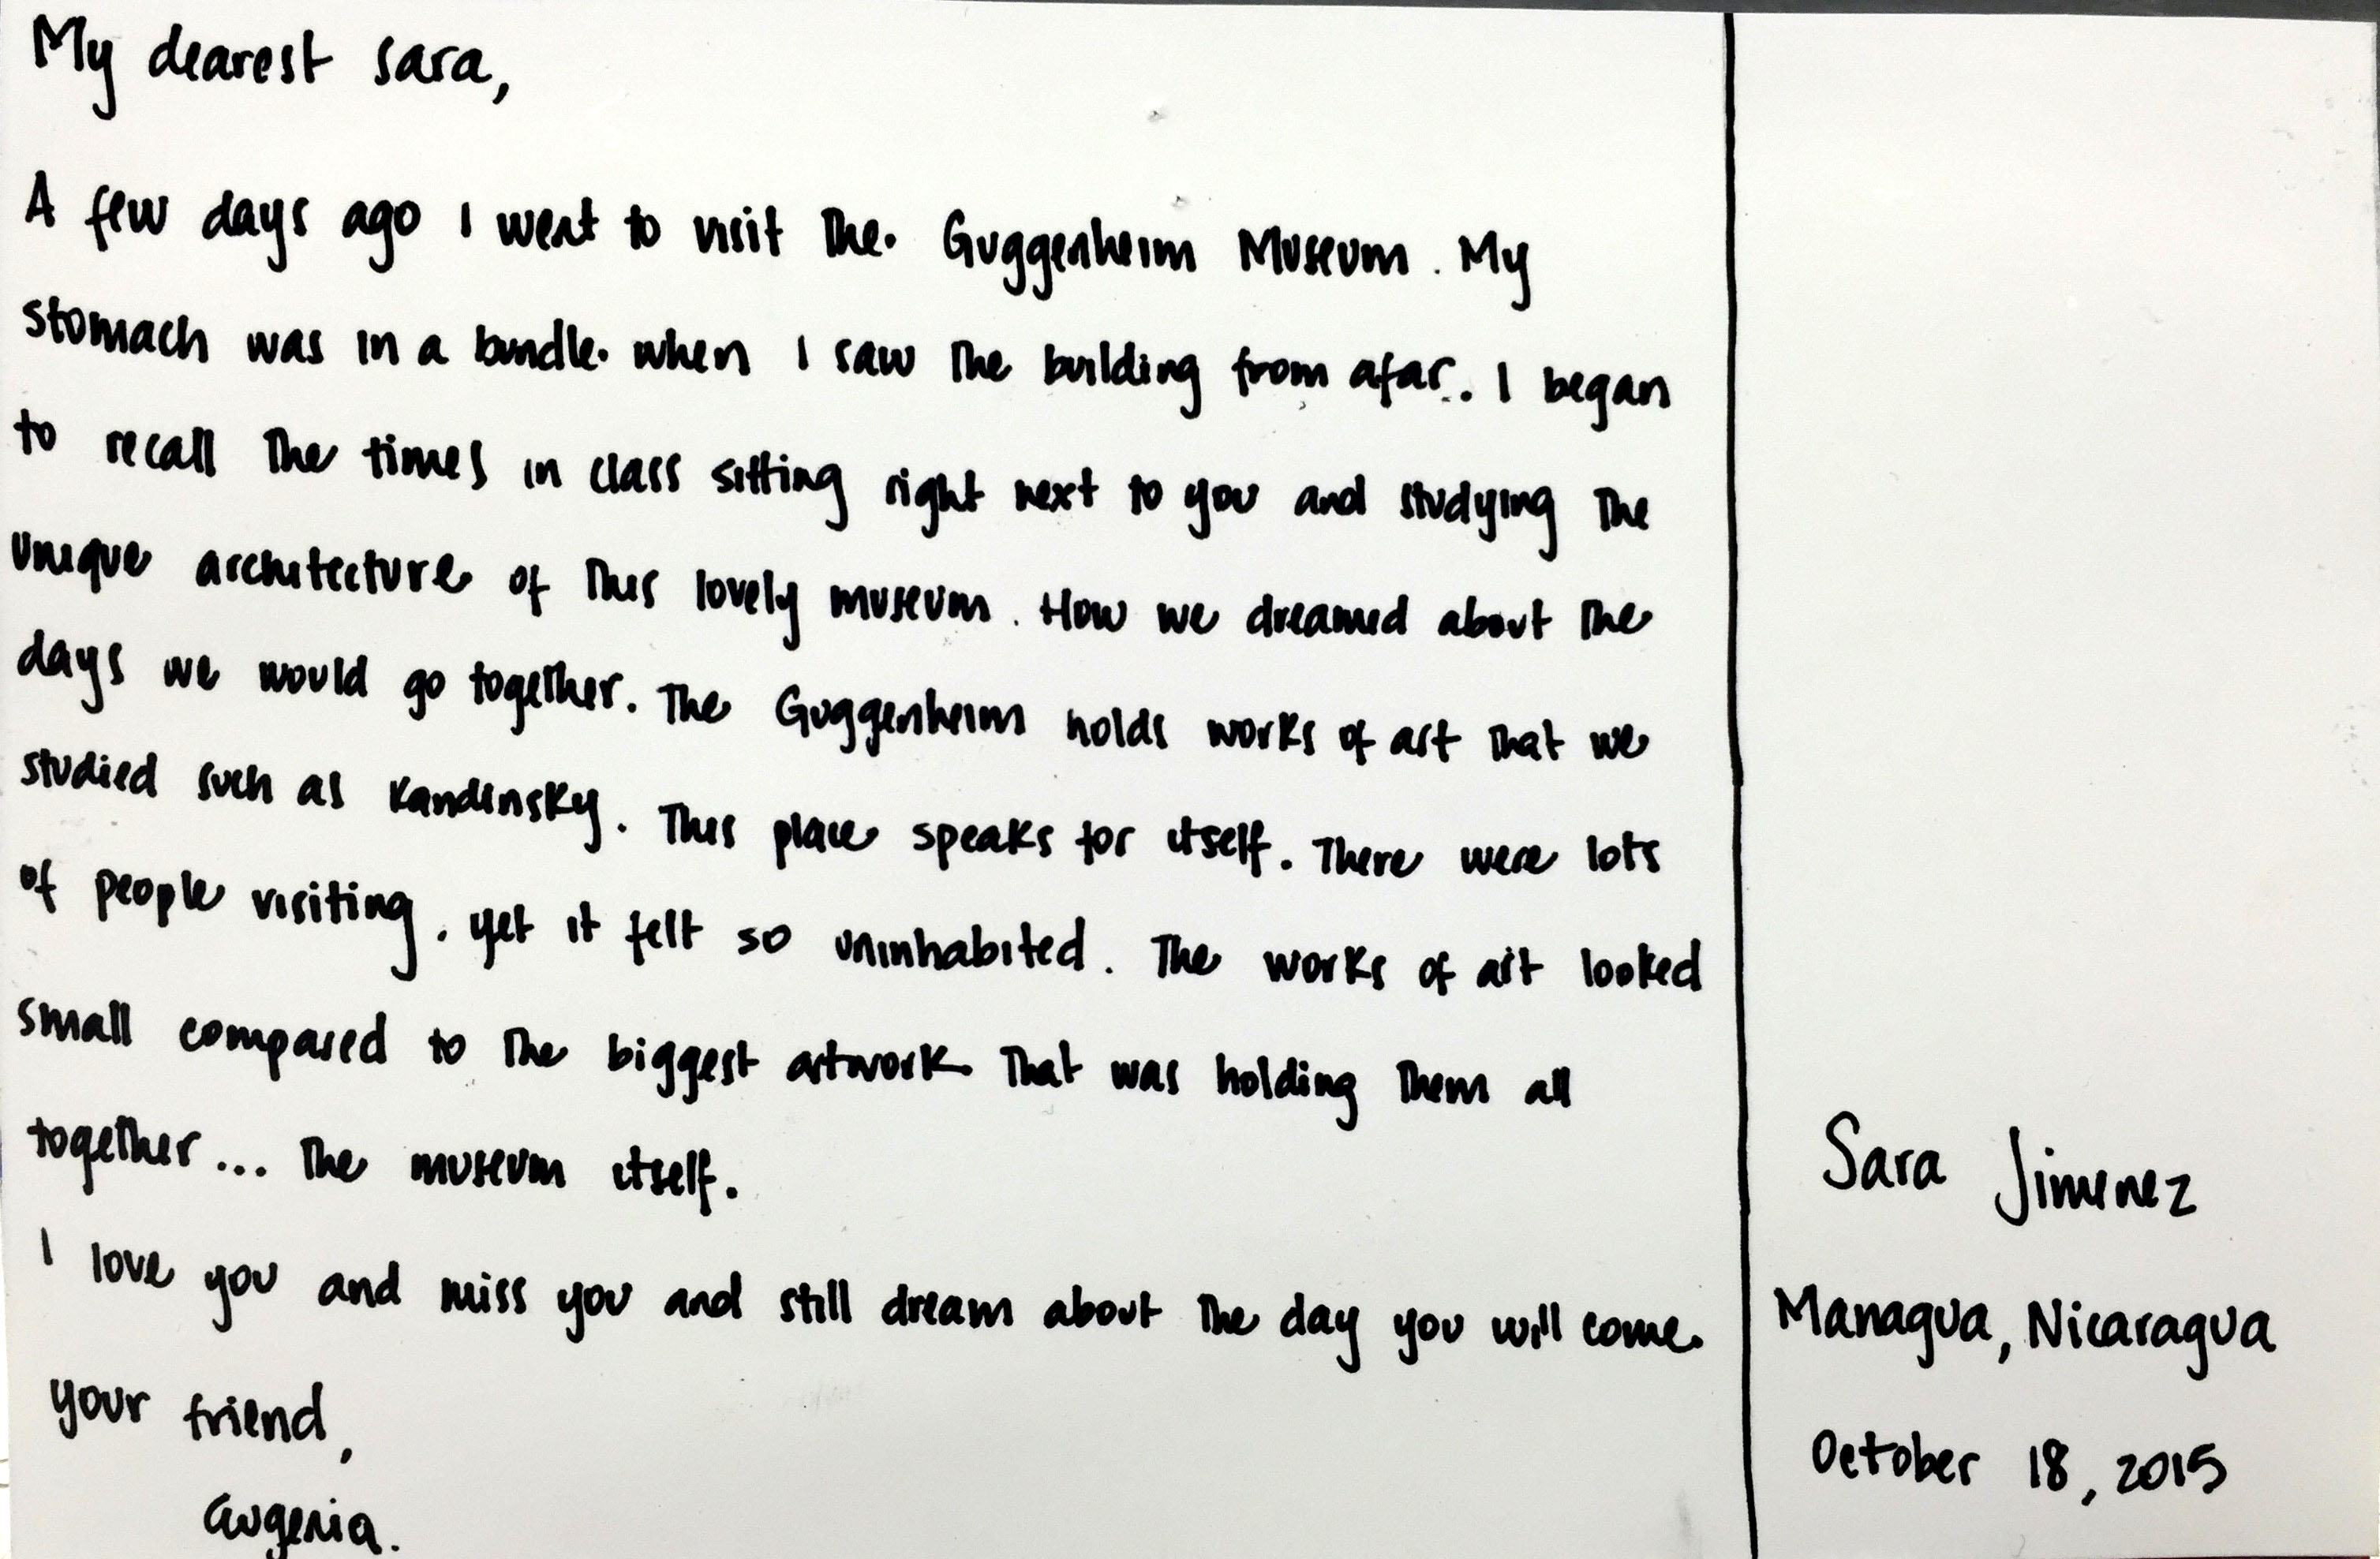 My dearest sara,
A few days ago I went to visit the. Guggenheim Museum. My
stomach was in a bundle. when I saw the building from afar. I began
to recall the times in class sitting right next to you and studying the
unique architecture of this lovely museum. How we dreamed about the
days we would go together. The Guggenheim holds works of art that we
studied such as Kandinsky. This place speaks for itself. There were lots
of people visiting, yet it felt so uninhabited. The works of art looked
small compared to the biggest artwork that was holding them all
together... The museum itself.
I love you and miss you and still dream about the day you will come.
your friend,
Eugenia.
Sara Jimenez
Managua, Nicaragua
October 18, 2015